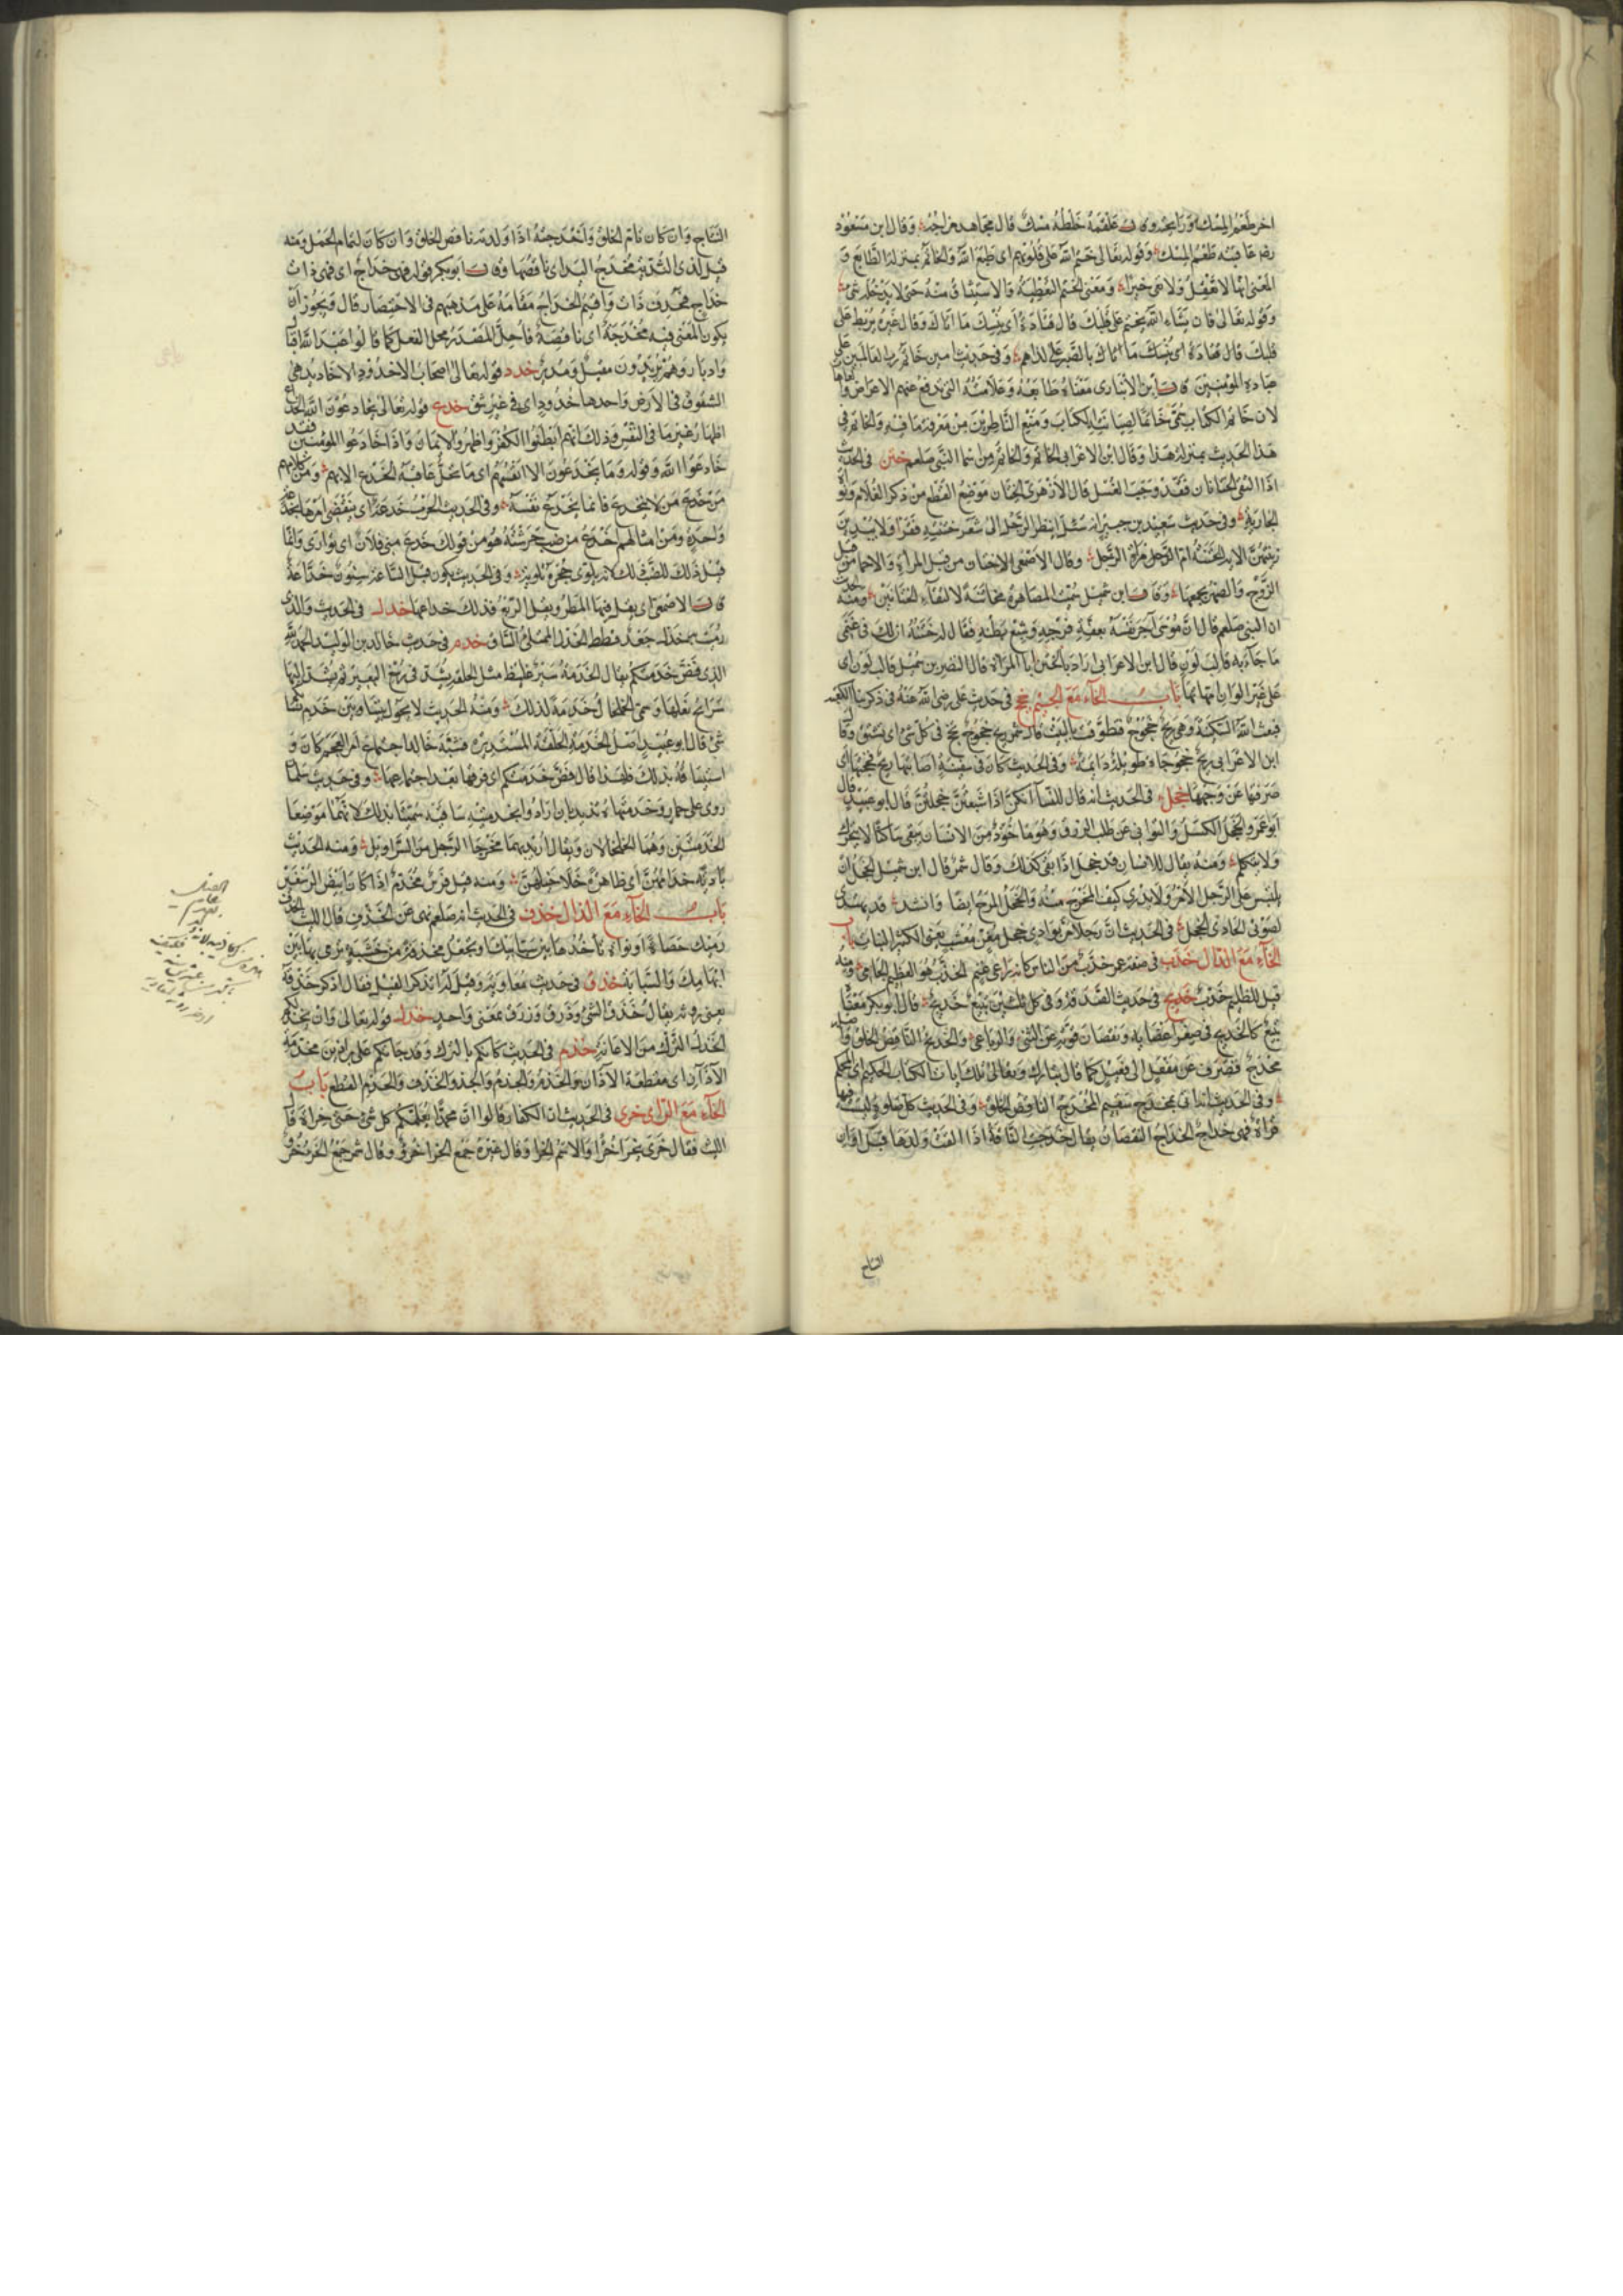 اخر طعم المسك ورائحته وقال علقمة خلطه مسك قال مجاهد مزاجه وقال ابن مسعود
رضه عاقبته طعم المسك وقوله تعالى ختم الله على قلوبهم اى طبع الله والخاتم بمنزلة الطابع و
المعنى انها لا تعقل ولا تعى خيرا ومعنى الختم التغطية والاستيثاق منه حتى لا يدخله شئ
وقوله تعالى فان يشاء الله يختم على قلبك قال قتادة اى ينسك ما اتاك وقال غيره يربط على
قلبك قال قتادة اى ينسك ما اتاك بالصبر على اذاهم وفى حديث امين خاتم رب العالمين على
عباده المؤمنين قال ابن الانبارى معناه طابعه وعلامته التى تدفع عنهم الاعراض والعاهات
لان خاتم الكتاب يمنع الناظرين من معرفة ما فيه والخاتم فى
هذا الحديث بمنزلة هذا وقال ابن الاعرابى الخاتم والخاتم من اسما النبى صلعم ختن فى الحديث
اذا التقى الختانان فقد وجب الغسل قال الازهرى الختان موضع القطع من ذكر الغلام ونواة
الجارية وفى حديث سعيد بن جبير انه سئل اينظر الرجل الى شعر ختنته فقرأ ولا يبدين
زينتهن الاية الختنة ام الرجل مراة الرجل وقال الاصمعى الاختان من قبل المراة والاحما من قبل
الزوج والصهر يجمعهما وقال ابن شميل سميت المصاهرة مخاتنة لالتقاء الختانين ومنه الحديث
ان النبى صلعم قال ان موسى اجر نفسه بعفة فرجه وشبع بطنه فقال له ختنه ان لك فى غنمى
ما جاءت به قالب لون قال ابن الاعرابى اراد بالختن ابا المراة قال النضر بن شميل قالب لون اى
على غير الوان امهاتها باب الخاء مع الجيم خجج فى حديث على رضى الله عنه فى ذكر بنا الكعبة
فبعث الله السكينة وهى ريح خجوج فتطوفت بالبيت قال شمر ريح خجوج تخج فى كل شئ اى تشق وقال
ابن الاعرابى ريح خجوجاة طويلة دائمة وفى الحديث كان فى سفينة اصابتها ريح فخجتها اى
صرفتها عن وجهها خجل فى الحديث انه قال للنساء انكن اذا شبعتن خجلتن قال ابو عبيد قال
ابو عمرو الخجل الكسل والتوانى عن طلب الرزق وهو ماخوذ من الانسان يبقى ساكنا لا يتحرك
ولا يتكلم ومنه يقال للانسان قد خجل اذا بقى كذلك وقال شمر قال ابن شميل الخجل ان
يلتبس على الرجل الامر ولا يدرى كيف المخرج منه والخجل المرح ايضا وانشد قد يهتدى
لصوتى الحادى الخجل فى الحديث ان رجلا مر بوادى خجل مغن معشب يعنى الكثير النبات باب
الخاء مع الدال خدب فى صفة عمر خدب من الناس كانه راعى غنم الخدب هو العظيم الجافى ومنه
قيل للظليم خدب خدج فى حديث الصدقة وفى كل ثلثين تبيع خديج قال ابو بكر معناه
تبيع كالخديج فى صغر اعضايه ونقصان قوته عن الثنى والرباعى والخديج الناقص الخلق واصله
مخدج فصرف عن مفعل الى فعيل كما قال تبارك وتعالى تلك ايات الكتاب الحكيم اى المحكم
وفى الحديث اتى بمخدج سقيم المخدج الناقص الخلق وفى الحديث كل صلوة ليست فيها
قراة فهى خداج الخداج النقصان يقال خدجت الناقة اذا القت ولدها قبل اوان
النتاج
النتاج وان كان تام الخلق واخدجته اذا ولدته ناقص الخلق وان كان لتمام الحمل ومنه
قيل لذى الثدية مخدج اليد اى ناقصها وقال ابو بكر قوله فهى خداج اى فهى ذات
خداج فحذف ذات واقيم الخداج مقامه على مذهبهم فى الاختصار قال ويجوز ان
يكون المعنى فيه مخدجة اى ناقصة فاحل المصدر محل الفعل كما قالوا عبد الله اقبال
وادبار وهم يريدون مقبل ومدبر خدد قوله تعالى اصحاب الاخدود الاخاديد هى
الشقوق فى الارض واحدها اخدود اى فى غير شق خدع قوله تعالى يخادعون الله الخداع
اظهار غير ما فى النفس وذلك انهم ابطنوا الكفر واظهروا الايمان واذا خادعوا المؤمنين فقد
خادعوا الله وقوله وما يخدعون الا انفسهم اى ما تحل عاقبة الخدع الا بهم ومن كلامهم
من خدع من لا يخدع فانما يخدع نفسه وفى الحديث الحرب خدعة اى ينقضى امرها بخدعة
واحدة ومن امثالهم اخدع من ضب حرشته هو من قولك خدع منى فلان اى توارى وانما
قيل ذلك للضب لانه يلوى جحره تلوية وفى الحديث يكون قبل الساعة سنون خداعة
قال الاصمعى اى يقل فيها المطر ويقل الريع فذلك خداعها خدل فى الحديث والذى
رميت به خدل جعد قطط الخدل الممتلئ الساق خدم فى حديث خالد بن الوليد الحمد لله
الذى فض خدمتكم يقال الخدمة سير غليظ مثل الحلقة يشد فى رسغ البعير ثم يشد اليها
سرائح نعلها وسمى الخلخال خدمة لذلك ومنه الحديث لا يحول بيننا وبين خدم نسائكم
شئ قال ابو عبيد اصل الخدمة الحلقة المستديرة فشبه خالد اجتماع امر العجم كان و
استيثاقه بذلك فلهذا قال فض خدمتكم اى فرقها بعد اجتماعها وفى حديث سلمان
روى على حمار وخدمتاه تذبذبان اراد بخدمتيه ساقيه سميتا بذلك لانهما موضعا
الخدمتين وهما الخلخالان ويقال اريد بهما مخرجا الرجل من السراويل ومنه الحديث
بادية خدامهن اى ظاهرة خلاخيلهن ومنه قيل فرس مخدم اذا كان ابيض الرسغين
باب الخاء مع الذال خذف فى الحديث انه صلعم نهى عن الخذف قال الليث الخذف
رميك حصاة او نواة تأخذها بين سبابتيك او تجعل مخذفة من خشبة ترمى بها بين
ابهامك والسبابة خذق فى حديث معاوية وقيل له اتذكر الفيل فقال اذكر خذقه
يعنى روثه يقال خذق الشئ وذرق وزرق بمعنى واحد خذل قوله تعالى وان يخذلكم
الخذل الترك من الاعانة خذم فى الحديث كانكم بالترك وقد جاءتكم على براذين مخذمة
الآذان اى مقطعة الآذان والخذم والجذم والجذ والخذف والحذم القطع باب
الخاء مع الراى خرى فى الحديث ان الكفار قالوا ان محمدا يعلمكم كل شئ حتى خراة قال
الليث فقال خرى يخرا خرا والاسم الخرا وقال غيره جمع الخرا خروء وقال شمر جمع الخرء خروء